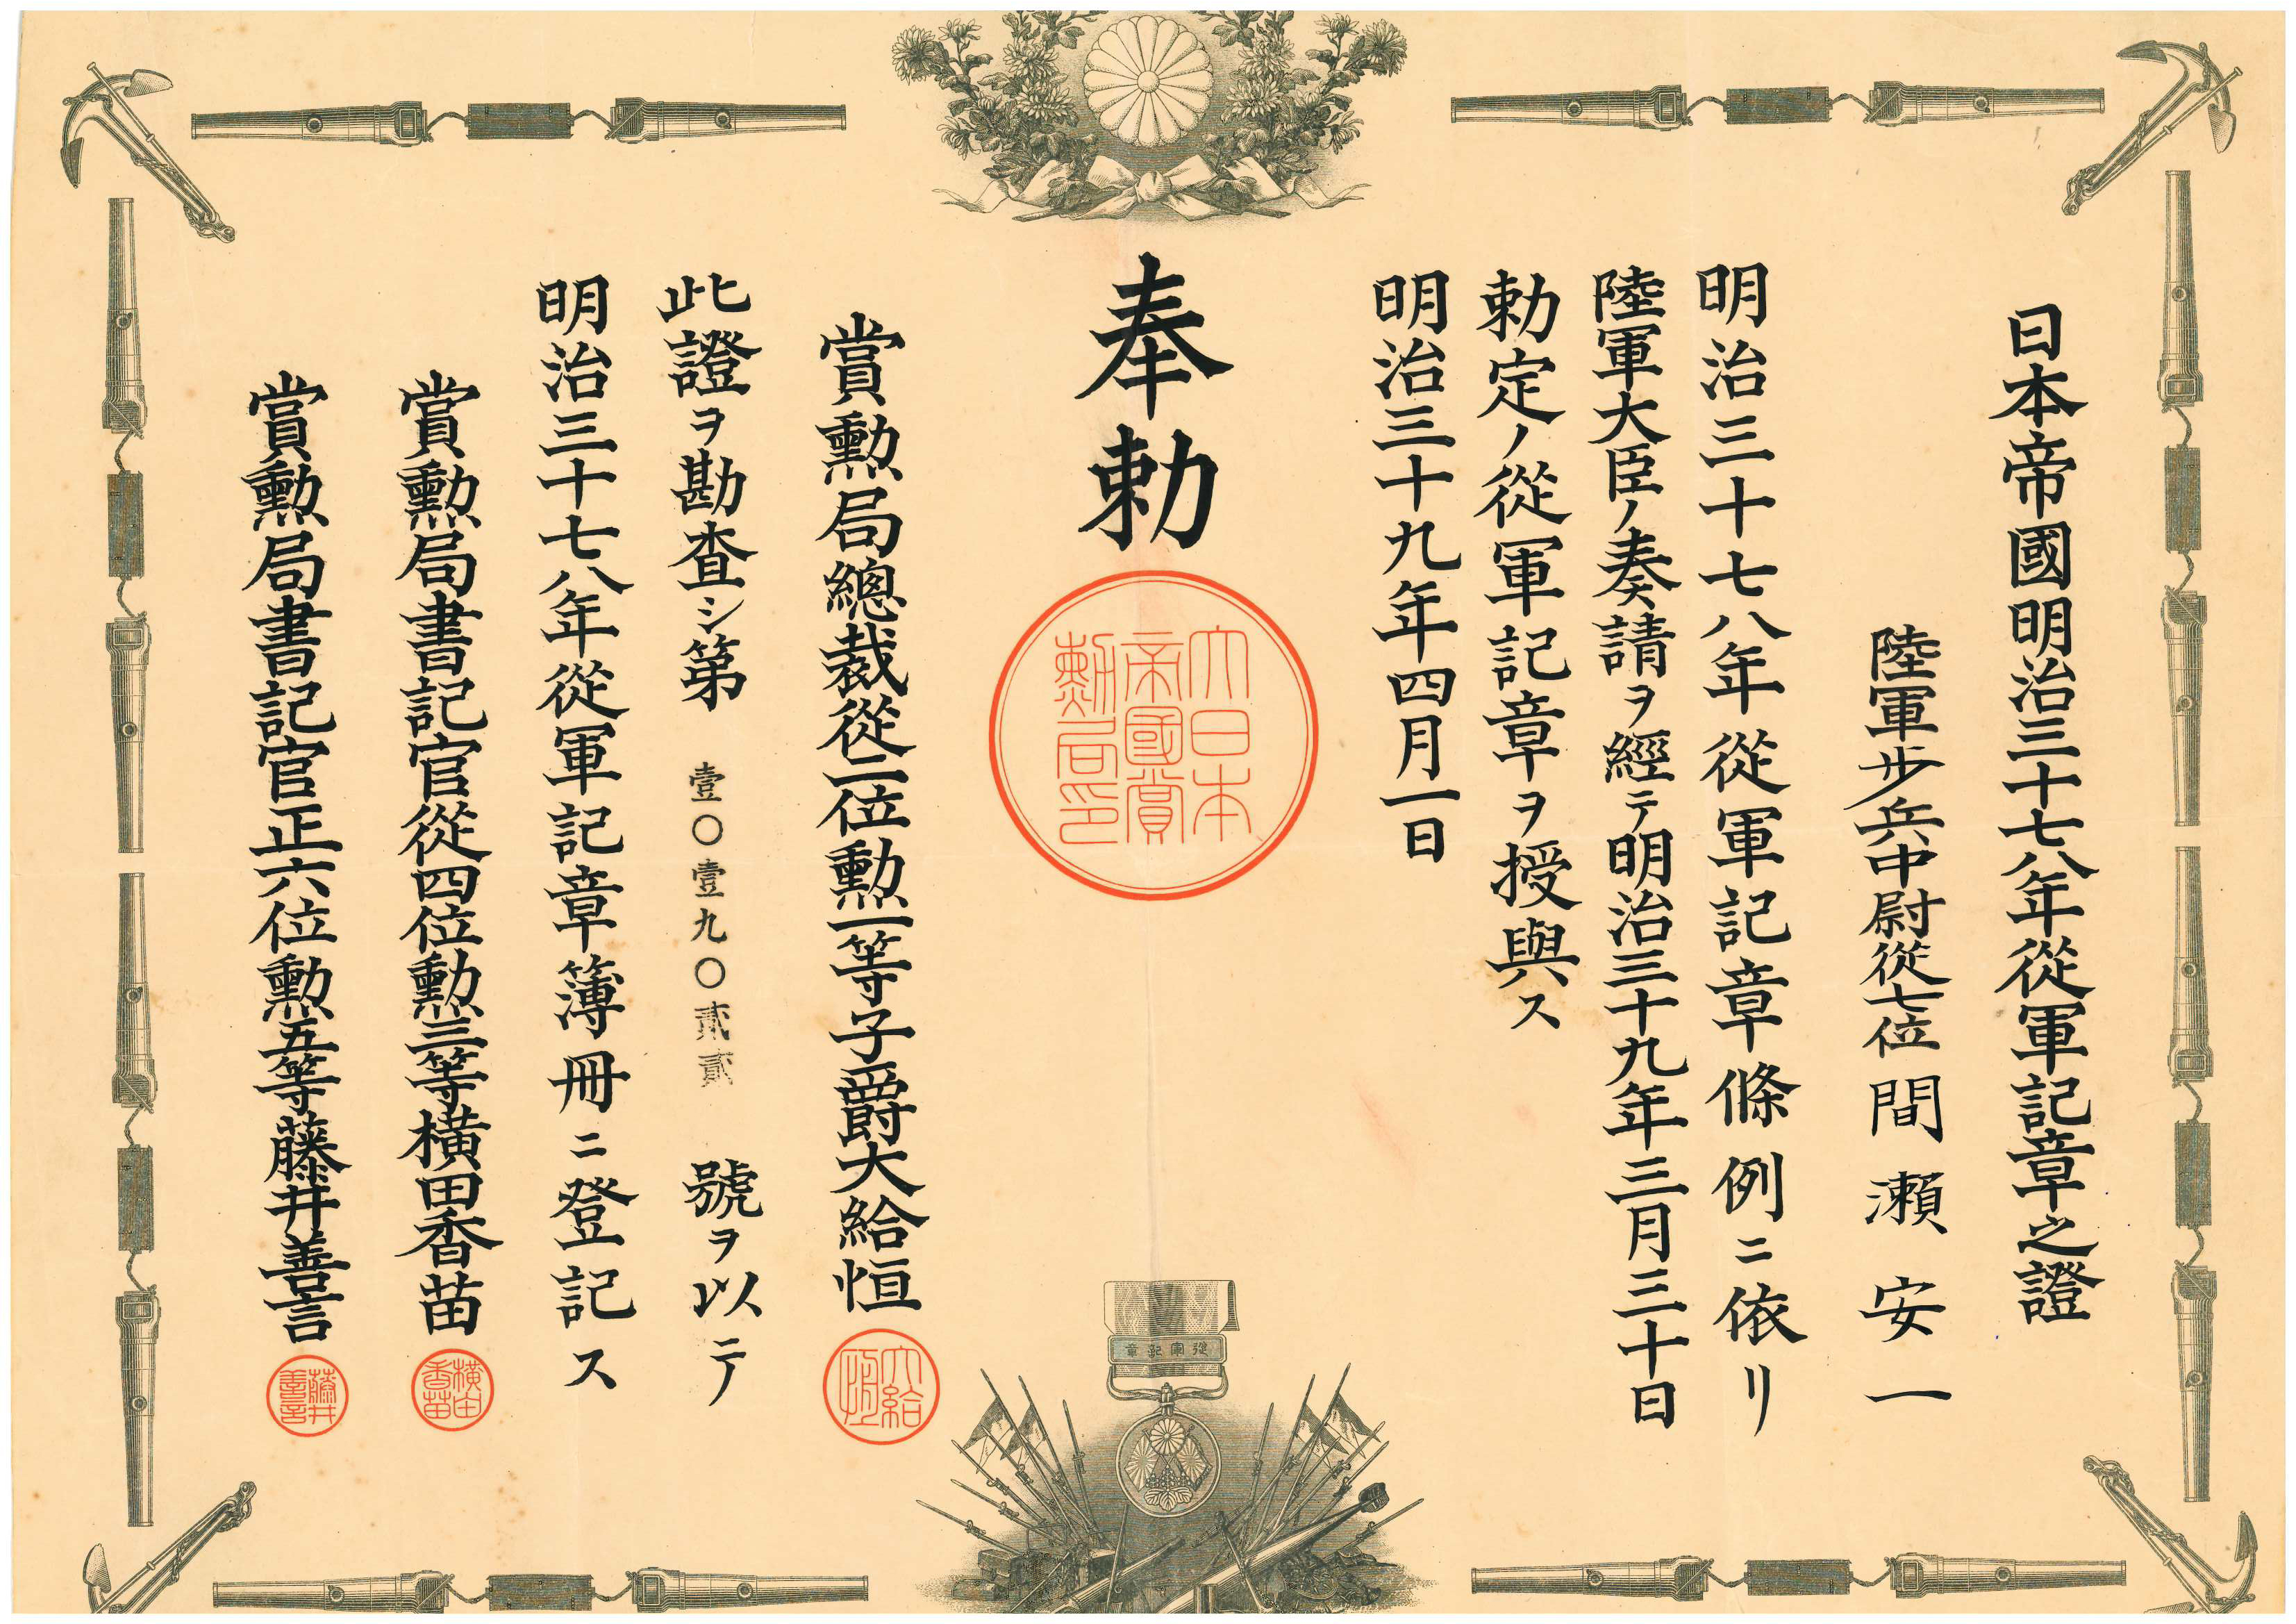 日本帝國明治三十七八年從軍記章之證
陸軍歩兵中尉從七位 間瀬安一
明治三十七八年從軍記章條例ニ依リ
陸軍大臣ノ奏請ヲ經テ明治三十九年三月三十日
勅定ノ從軍記章ヲ授與ス
明治三十九年四月一日
奉勅
大日本
帝國賞
勲局印
賞勲局總裁從二位勲一等子爵大給恒
大給
恒
此證ヲ勘査シ第 壹〇壹九〇貳貳 號ヲ以テ
明治三十七八年從軍記章簿冊ニ登記ス
賞勲局書記官從四位勲三等横田香苗
横田
香苗
賞勲局書記官正六位勲五等藤井善言
藤井
善言
從軍記章